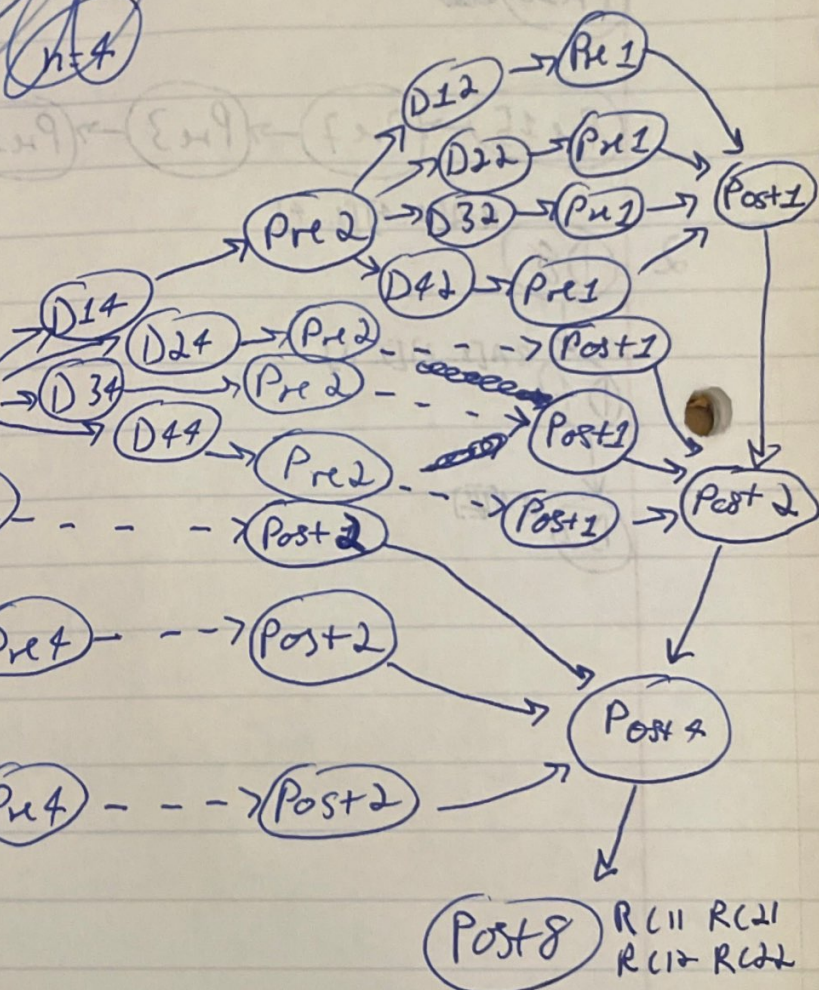 n=4
Pre 1
D12
D22
Pre1
Post1
Pre 2
D32
Pre1
D42
Pre1
D14
D24
Pre2
Post1
D34
Pre 2
Post1
D44
Pre2
Post 2
Post1
Post 2
Pre4
Post2
Post 4
Pre4
Post2
Post8
RC11 RC21
RC12 RC22